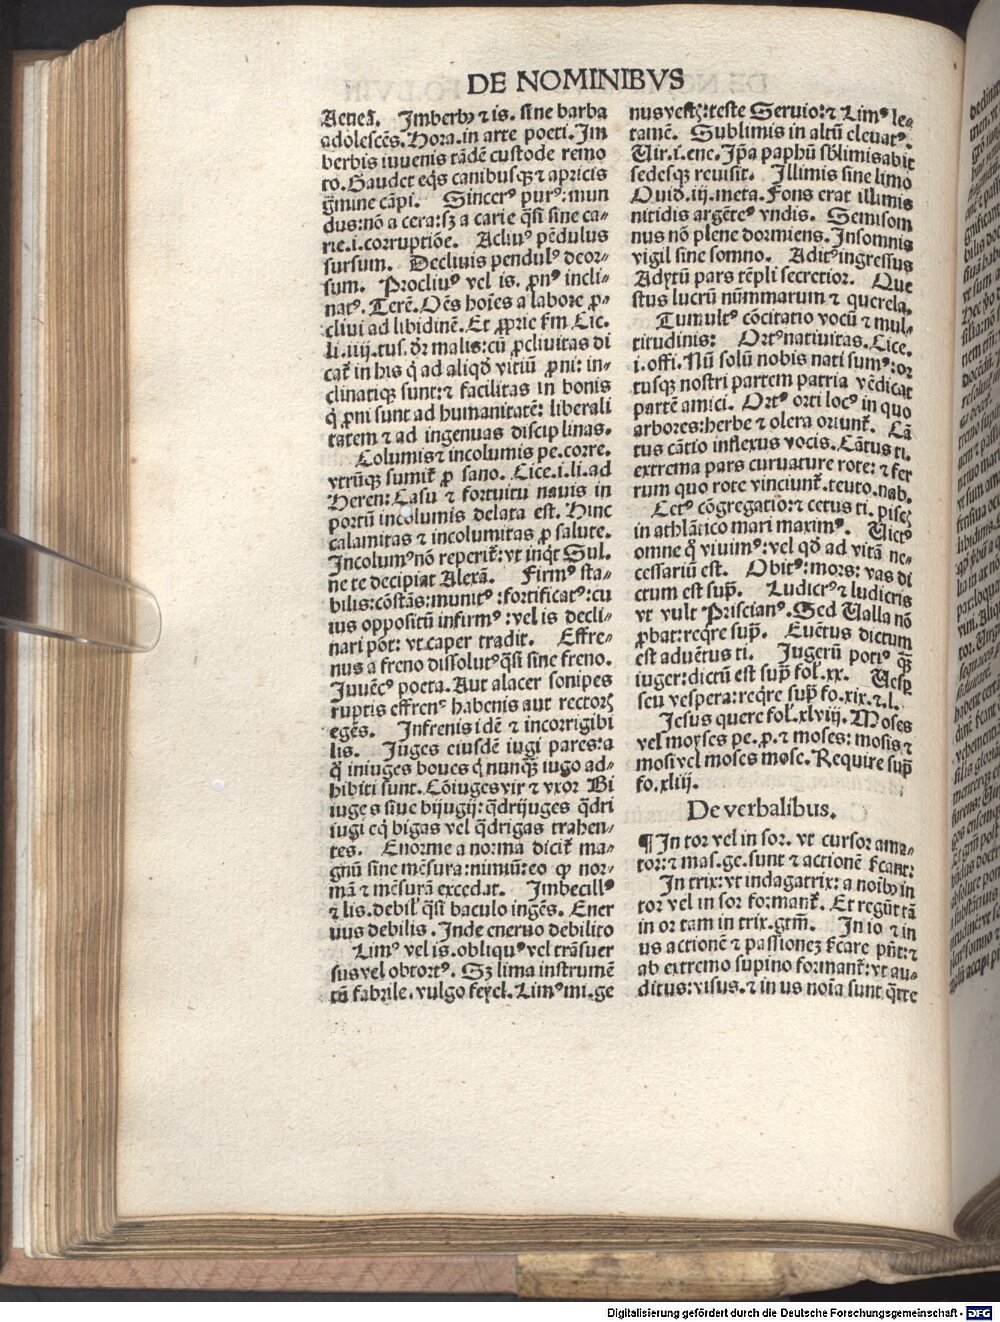 DE NOMINIBVS
Aeneꝭ. Imberbꝰ ⁊ is. sine barba
adolescēs. Hora. in arte poeti. Im
berbis iuuenis tādē custode remo
to. Gaudet eq̄s canibusqꝫ ⁊ apricis
g̅mine cāpi. Sincerꝰ purꝰ: mun
dus: nō a cera: sꝫ a carie q̄si sine ca-
rie. i. corruptiōe. Accliuꝰ pēdulus
sursum. Decliuis pendulꝰ deor-
sum. Procliuꝰ vel is. ꝓnꝰ incli-
natꝰ. Terē. Oēs hoīes a labore ꝓ-
cliui ad libidinē. Et ꝓprie ẜm Cic.
li. iiij. tus. dr̄ malis: cū ꝓcliuitas di
cat̄ in his q̇ ad aliqd̄ vitiū ꝓni: in-
clinatiqꝫ sunt: ⁊ facilitas in bonis
q̇ ꝓni sunt ad humanitatē: liberali
tatem ⁊ ad ingenuas disciplinas.
Columis ⁊ incolumis pe. corre.
vtrūqꝫ sumit̄ ꝓ sano. Cice. i. li. ad
Heren: Casu ⁊ fortuitu nauis in
portū incolumis delata est. Hinc
calamitas ⁊ incolumitas ꝓ salute.
Incolumꝰ nō reperit̄: vt inq̇t Sul.
ne te decipiat Alexā. Firmꝰ sta-
bilis: cōstās: munitꝰ: fortificatꝰ: cu
ius oppositū infirmꝰ: vel is decli-
nari pōt: vt caper tradit. Effre-
nus a freno dissolutꝰ q̄si sine freno.
Iuuēcꝰ poeta. Aut alacer sonipes
ruptis effrenꝰ habenis aut rectorꝭ
egēs. Infrenis idē ⁊ incorrigibi
lis. Iuges eiusdē iugi pares: a
q̊ iniuges boues q̇ nunqꝫ̄ iugo ad-
hibiti sunt. Cōiuges vir ⁊ vxor Bi
iuges siue bijugij: q̄drijuges q̄dri
iugi eq̇ bigas vel q̄drigas trahen-
tes. Enorme a norma dicit̄ ma-
gnū sine mēsura: nimiū: eo ꝙ nor-
mā ⁊ mēsurā excedat. Imbecillꝰ
⁊ lis. debilꝭ q̄si baculo ingēs. Ener
uus debilis. Inde eneruo debilito
Limꝰ vel is. obliquꝰ vel trāsuer
sus vel obtortꝰ. Sꝫ lima instrumē
tū fabrile. vulgo feyel. Limꝰ mi. ge
nus vestꝭ: teste Seruio: ⁊ Limꝰ le-
tamē. Sublimis in altū eleuatꝰ.
Vir. i. ene. Ip̄a paphū sb̄limis abit
sedesqꝫ reuisit. Illimis sine limo
Ouid. iij. meta. Fons erat illimis
nitidis argēteꝰ vndis. Semisom
nus nō plene dormiens. Insomnis
vigil sine somno. Aditꝰ ingressus
Adytū pars tēpli secretior. Que
stus lucrū nūmmarum ⁊ querela.
Tumultꝰ cōcitatio vocū ⁊ mul-
titudinis: Ortꝰ natiuitas. Cice.
i. offi. Nō solū nobis nati sumꝰ: or
tusqꝫ nostri partem patria vēdicat
partē amici. Ortꝰ orti locꝰ in quo
arbores: herbe ⁊ olera oriunt̄. Cā
tus cātio inflexus vocis. Cātus ti.
extrema pars curuature rote: ⁊ fer
rum quo rote vinciunt̄. teuto. nab.
Cetꝰ cōgregatio: ⁊ cetus ti. piscꝭ
in athlātico mari maximꝰ. Victꝰ
omne q̊ viuimꝰ: vel qd̄ ad vitā ne-
cessariū est. Obitꝰ: mors: vas di
ctum est sup̄. Ludicrꝰ ⁊ ludicris
vt vult Priscianꝰ. Sed Valla nō
ꝓbat: req̄re sup̄. Euētus dictum
est aduētus ti. Iugerū potiꝰ qꝫ̄
iuger: dictū est sup̄ fol. xx. Vesꝑ
seu vespera: req̄re sup̄ fo. xix. ⁊. l.
Jesus quere fol. xlviij. Moses
vel moyses pe. p. ⁊ moses: mosis ⁊
mosi vel moses mose. Require sup̄
fo. xliij.
De verbalibus.
¶ In tor vel in sor. vt cursor ama-
tor: ⁊ mas. ge. sunt ⁊ actionē ẜcant:
In trix: vt indagatrix: a noībꝰ in
tor vel in sor formant̄. Et regūt tā
in or tam in trix. gtm̄. In io ⁊ in
us actionē ⁊ passionez ẜcare pn̄t: ⁊
ab extremo supino formant̄: vt au-
ditus: visus. ⁊ in us noīa sunt q̄rte
Digitalisierung gefördert durch die Deutsche Forschungsgemeinschaft - DFG